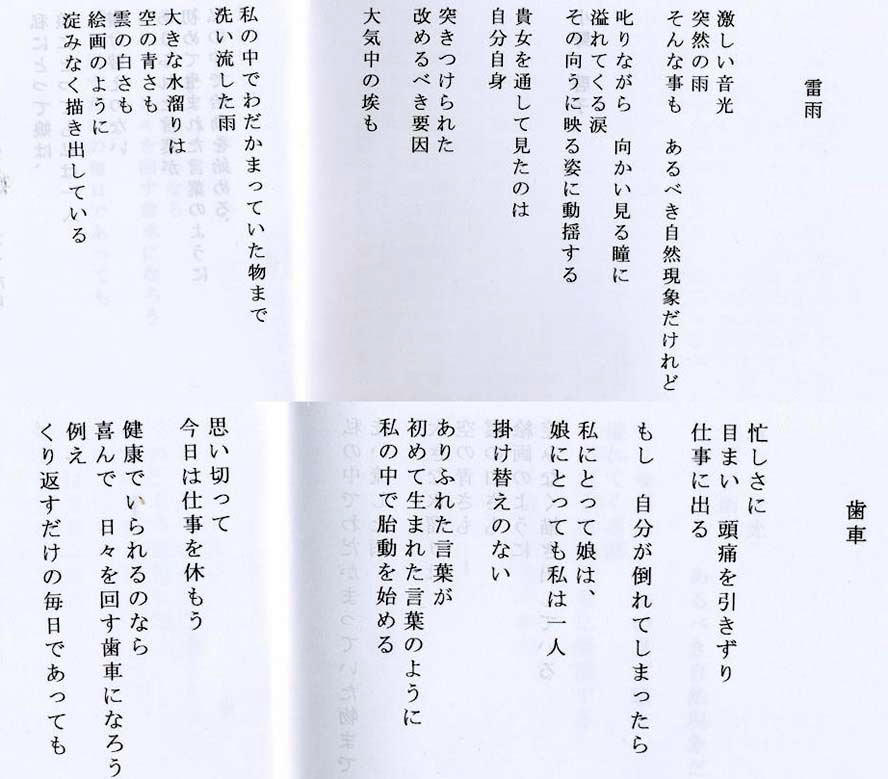 雷雨
激しい音光
突然の雨
そんな事も　あるべき自然現象だけれど
叱りながら　向かい見る瞳に
溢れてくる涙
その向うに映る姿に動揺する
貴女を通して見たのは
自分自身
突きつけられた
改めるべき要因
大気中の埃も
私の中でわだかまっていた物まで
洗い流した雨
大きな水溜りは
空の青さも
雲の白さも
絵画のように
淀みなく描き出している
歯車
忙しさに
目まい　頭痛を引きずり
仕事に出る
もし　自分が倒れてしまったら
私にとって娘は、
娘にとっても私は一人
掛け替えのない
ありふれた言葉が
初めて生まれた言葉のように
私の中で胎動を始める
思い切って
今日は仕事を休もう
健康でいられるのなら
喜んで　日々を回す歯車になろう
例え
くり返すだけの毎日であっても